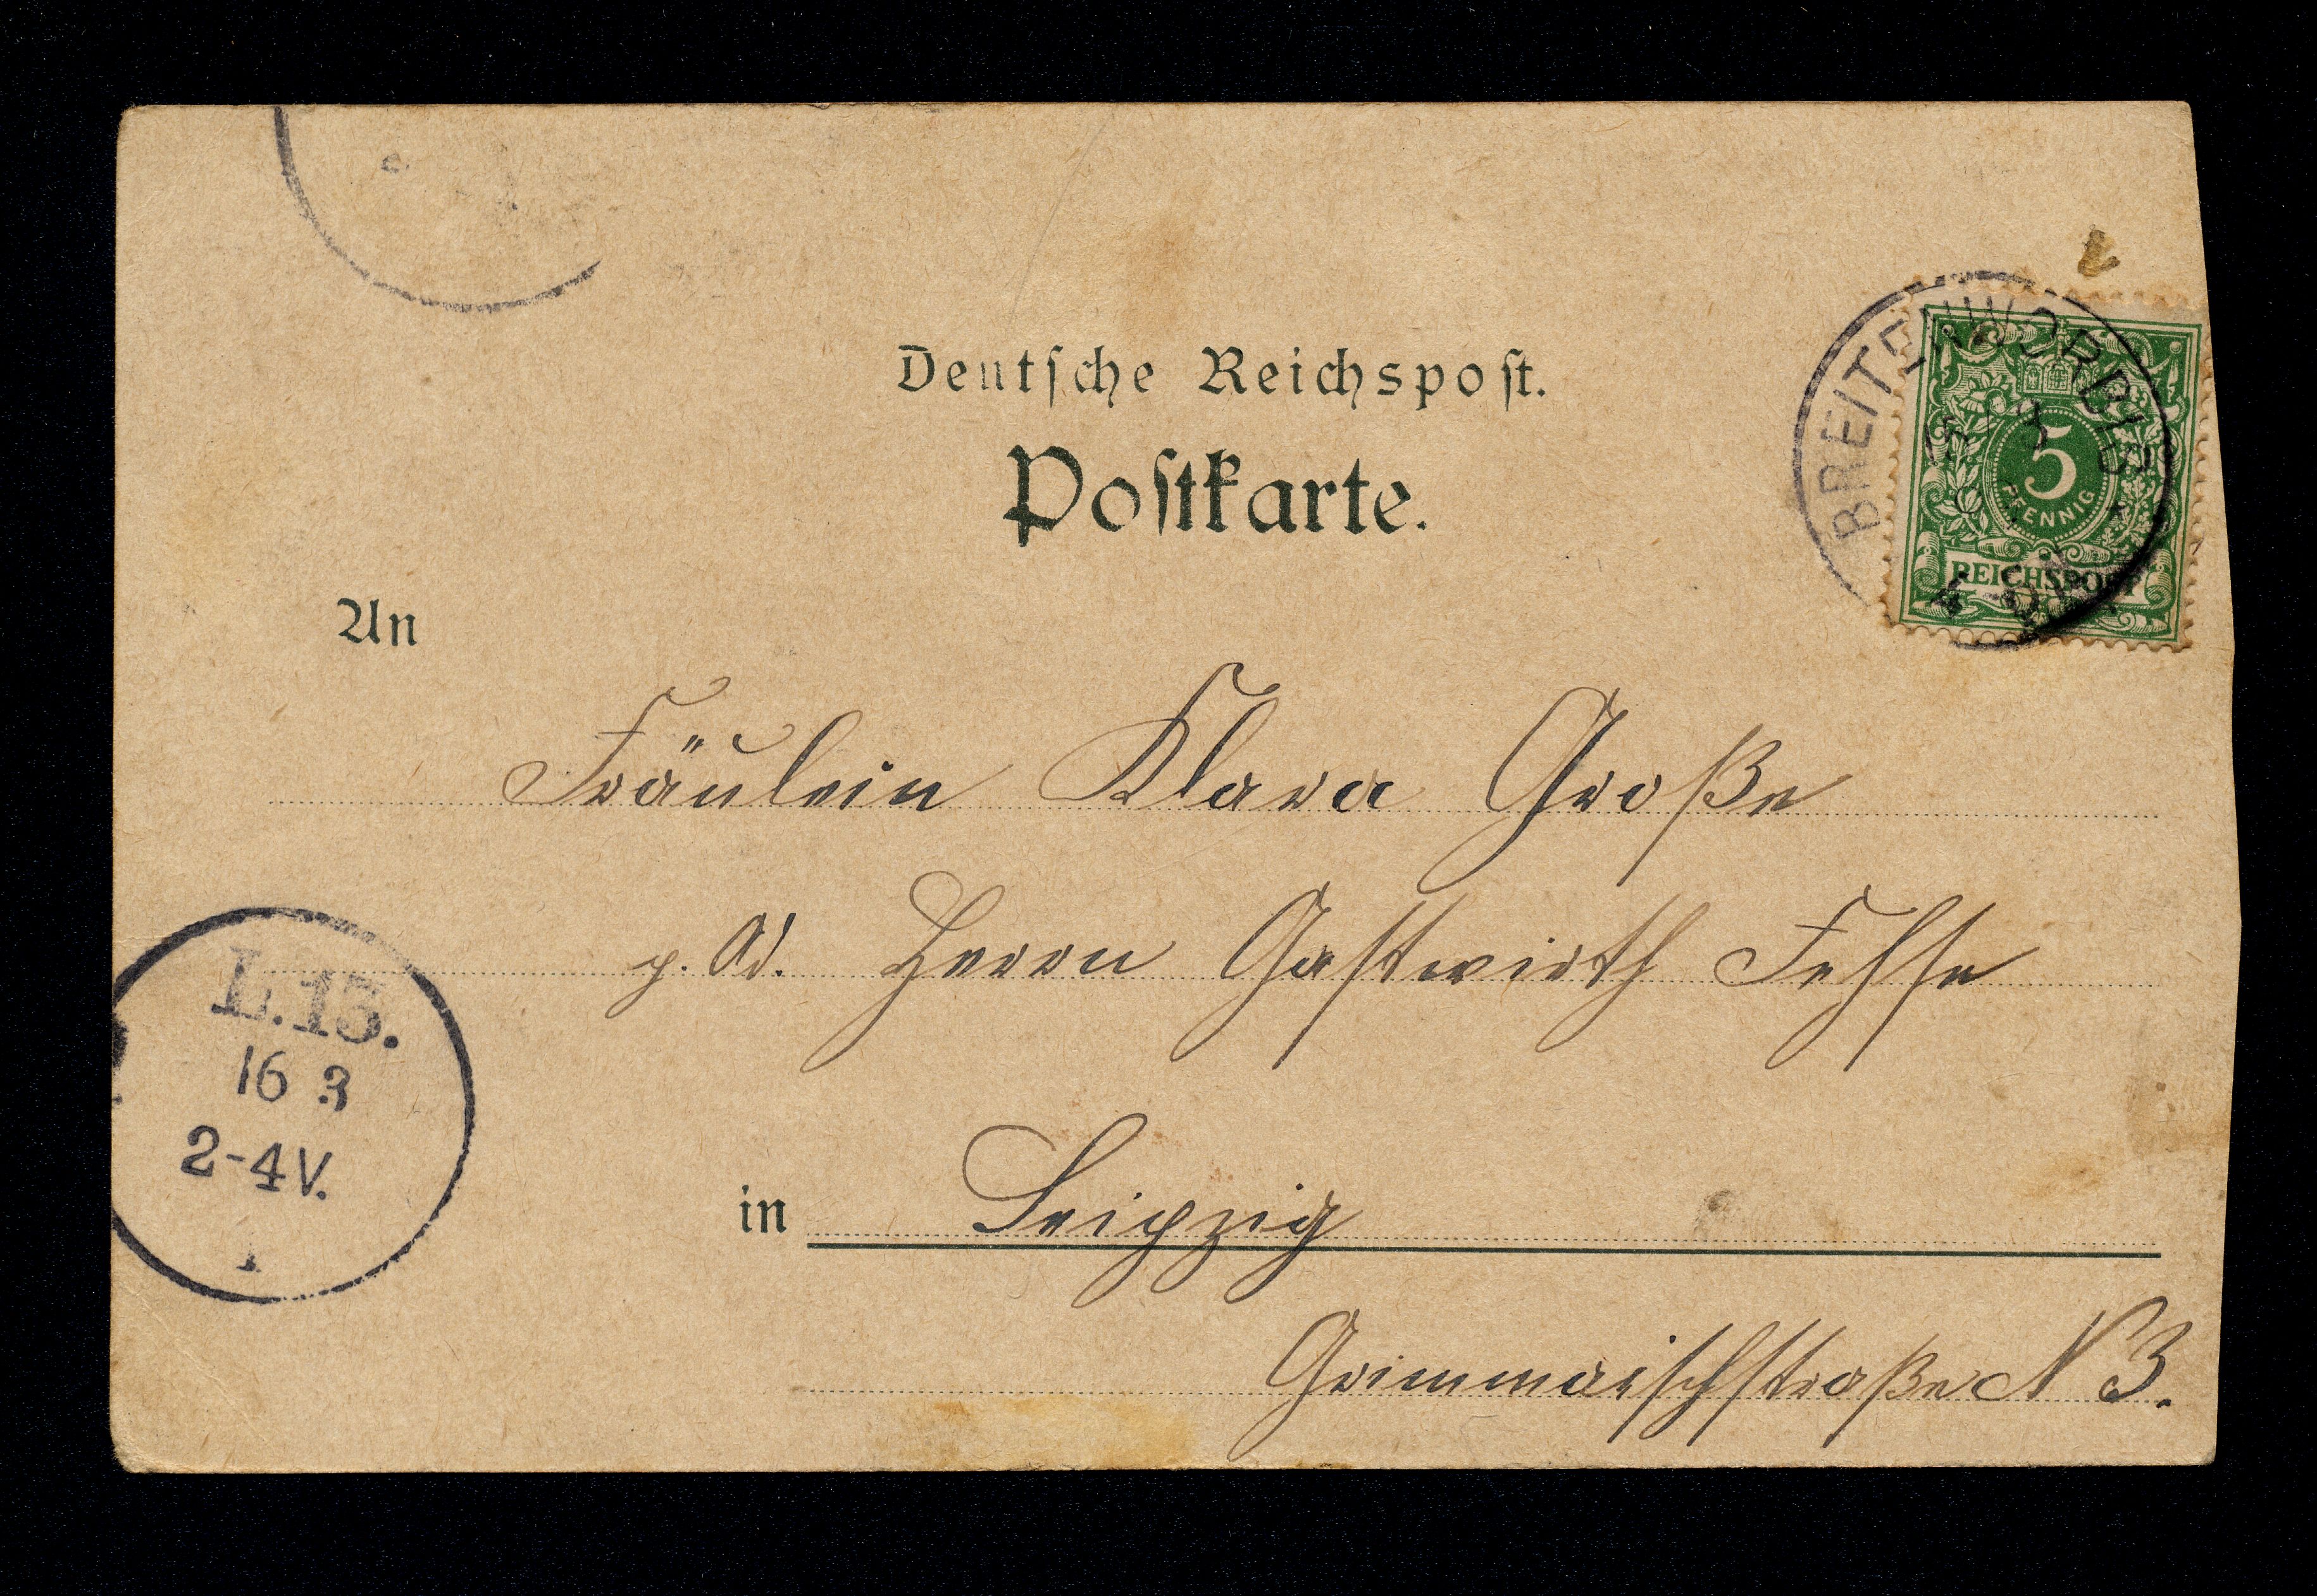 Deutsche Reichspost.
Postkarte.
BREITENWORBIS
5
PFENNIG
REICHSPOST
An
Fräulein Klara Große
p. Ad. Herrn Gastwirth Fehse
L. 13.
16 3
2-4 V.
in Leipzig
Grimmaischstraße N 3.